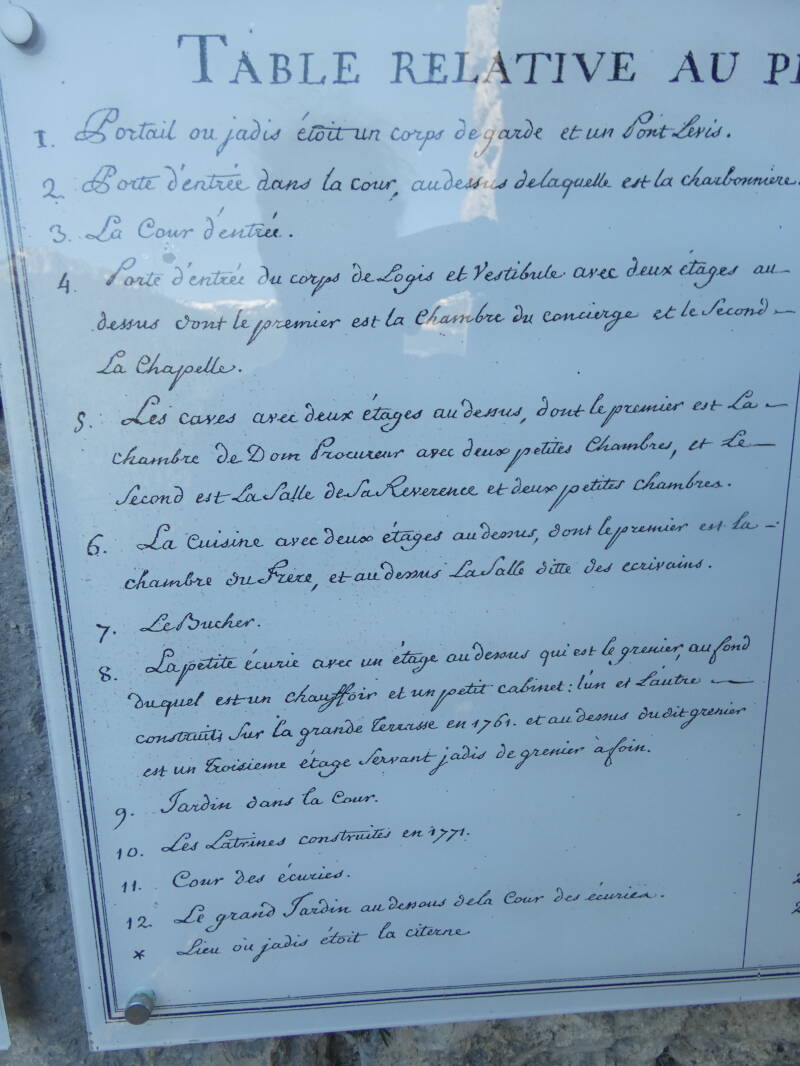 TABLE RELATIVE AU
1. Portail ou jadis étoit un corps de garde et un Pont Levis.
2 Porte d'entrée dans la cour, au dessus de laquelle est la charbonniere.
3. La Cour d'entrée.
4. Porte d'entrée du corps de Logis et Vestibule avec deux étages au-
dessus dont le premier est la Chambre du concierge et le Second -
La Chapelle.
5. Les caves avec deux étages au dessus, dont le premier est La -
chambre de Dom Procureur avec deux petites Chambres, et Le -
Second est La Salle de Sa Reverence et deux petites chambres.
6. La Cuisine avec deux étages au dessus, dont le premier est la -
chambre du Frere, et au dessus La Salle ditte des ecrivains.
7. Le Bucher.
8. La petite écurie avec un étage au dessus qui est le grenier, au fond
duquel est un chauffoir et un petit cabinet: l'un et L'autre -
construits sur la grande Terrasse en 1761. et au dessus du dit grenier
est un Troisieme étage Servant jadis de grenier à foin.
9. Jardin dans la Cour.
10. Les Latrines construites en 1771.
11. Cour des écuries.
12. Le grand Jardin au dessous de la Cour des écuries.
* Lieu où jadis étoit la citerne